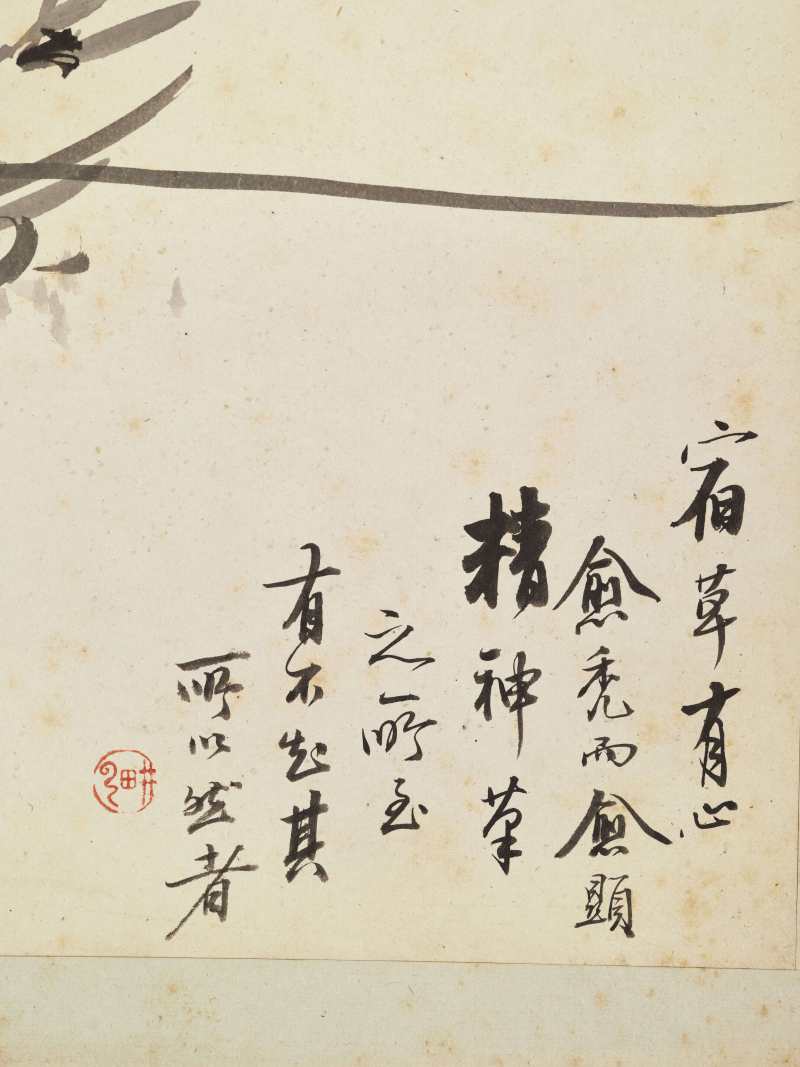 宿草有心
愈禿而愈顯
精神筆
之所至
有不知其
所以然者